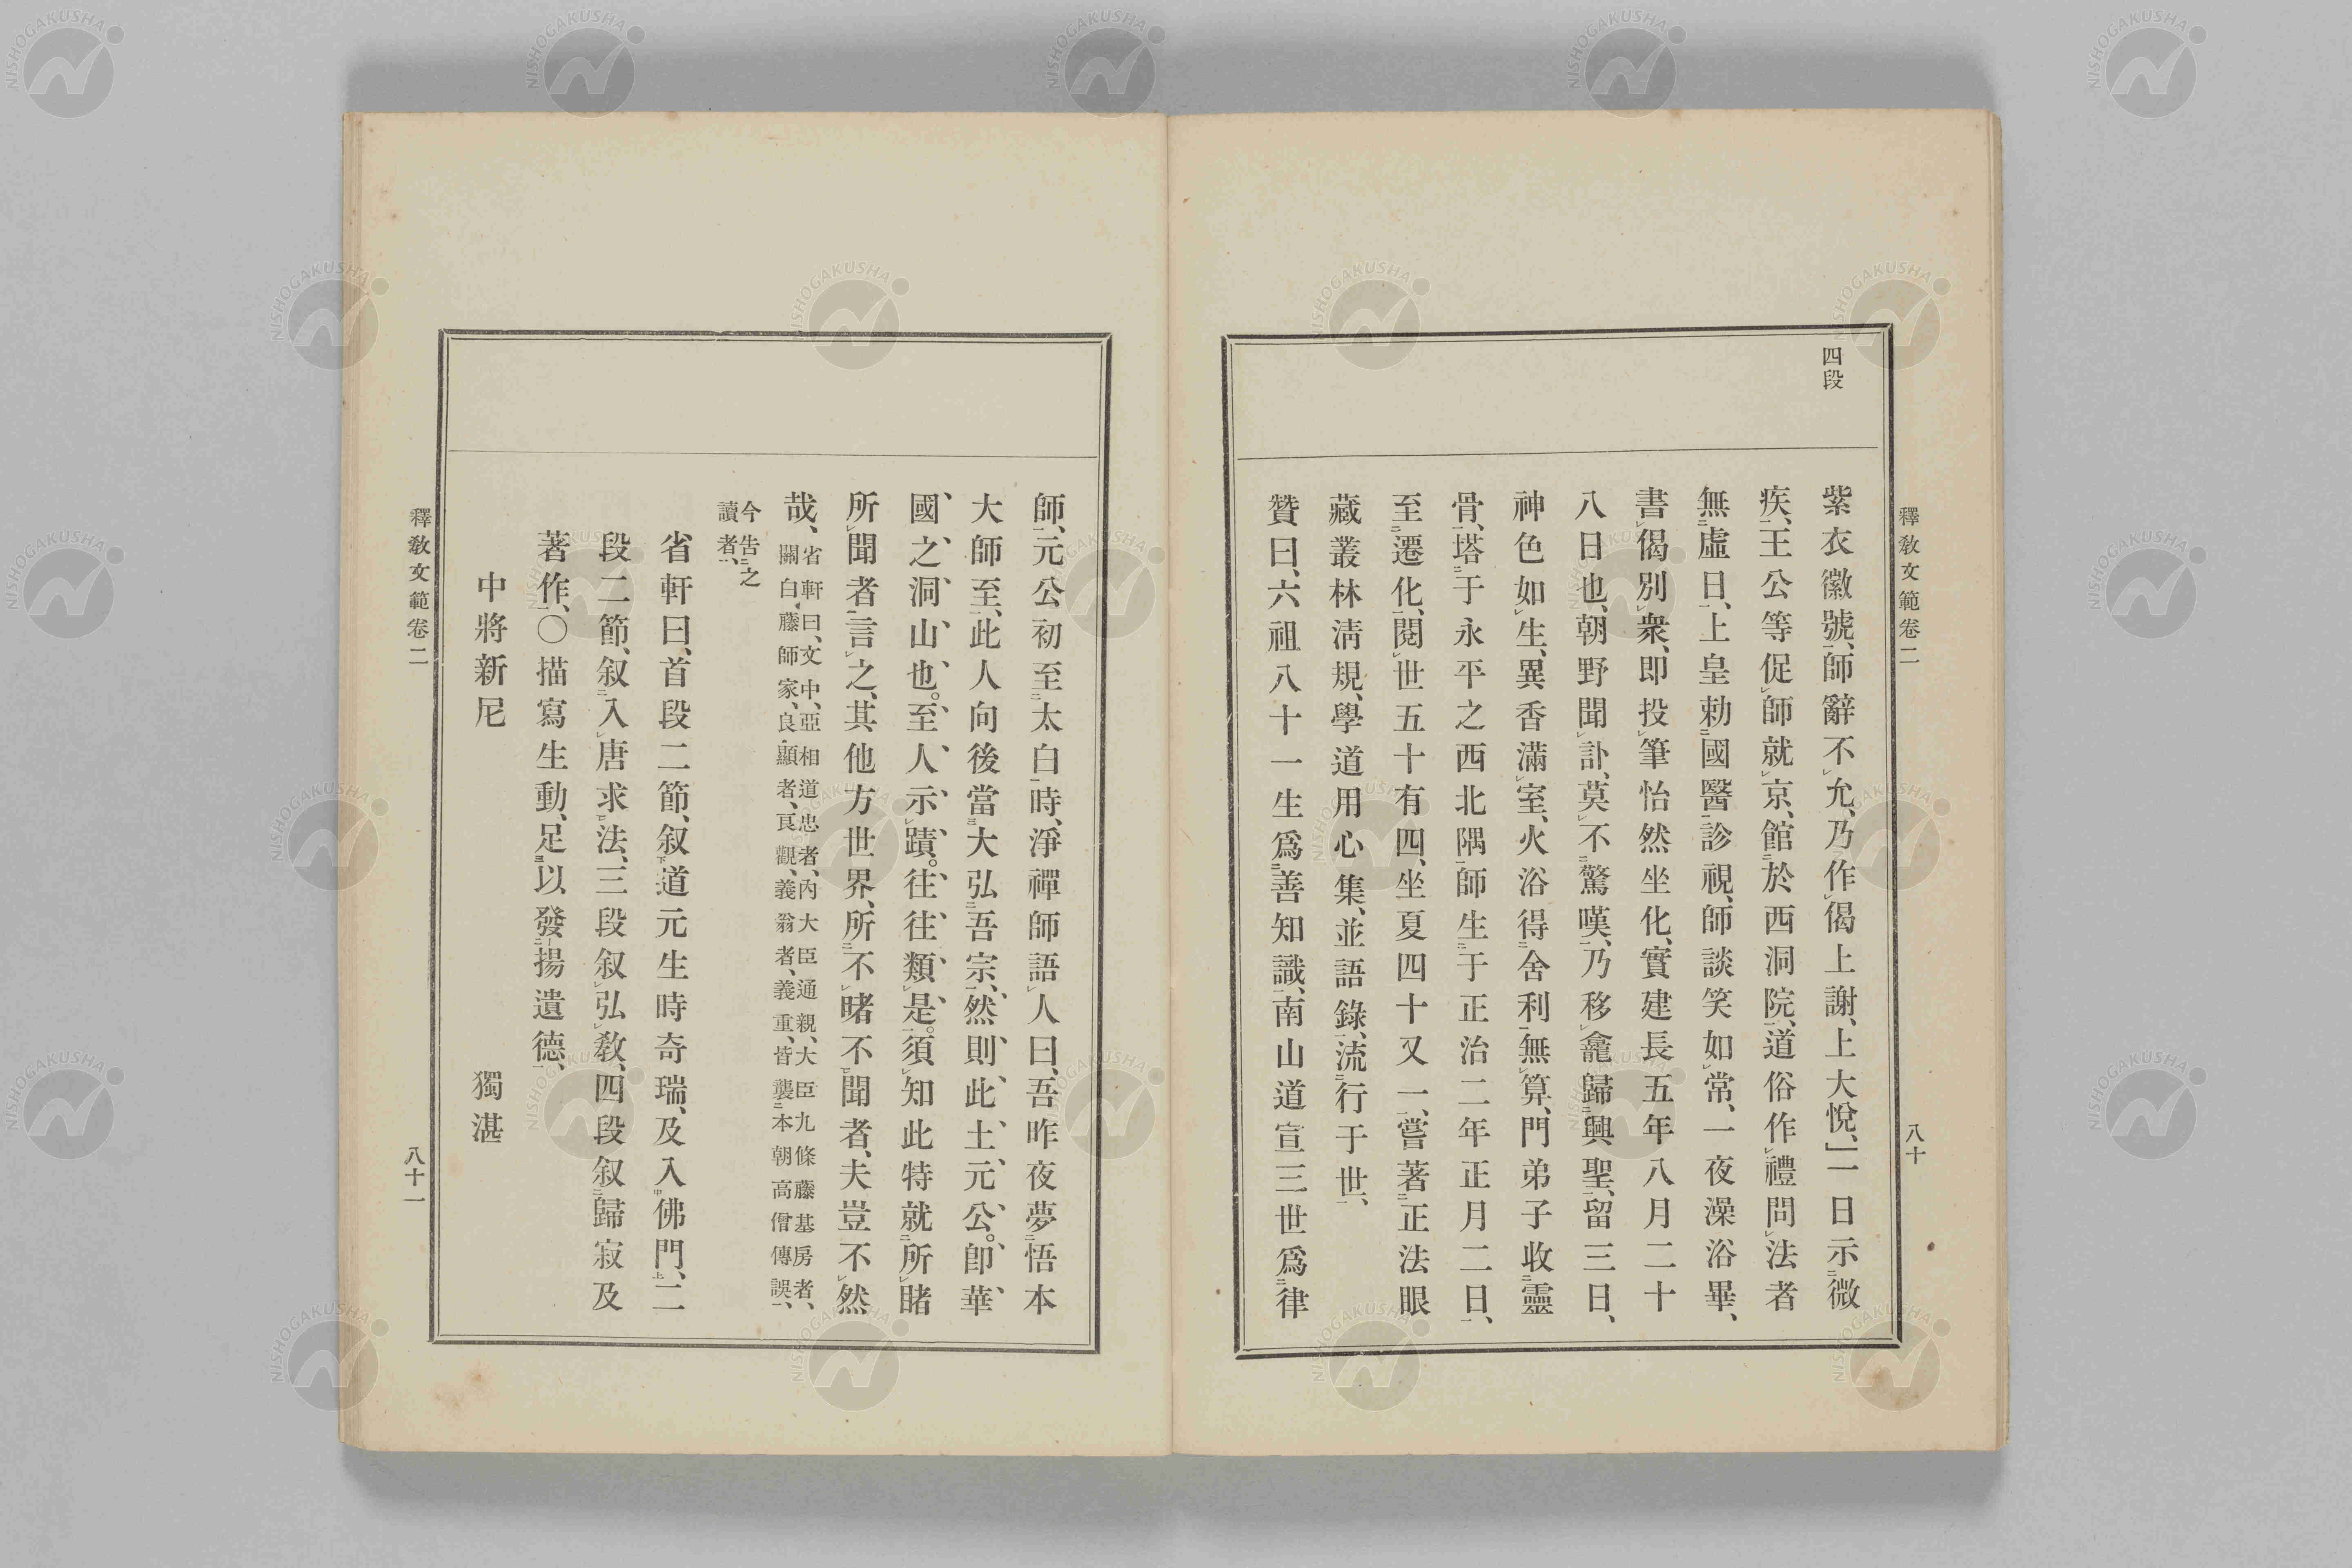 釋教文範卷二
八十
四段
紫衣徽號、師辭不允、乃作偈上謝、上大悅、」一日示微
疾、王公等促師就京、館於西洞院、道俗作禮問法者
無虛日、上皇勅國醫診視、師談笑如常、一夜澡浴畢、
書偈別衆、即投筆怡然坐化、實建長五年八月二十
八日也、朝野聞訃、莫不驚嘆、乃移龕歸興聖、留三日、
神色如生、異香滿室、火浴得舍利無算、門弟子收靈
骨、塔于永平之西北隅、師生于正治二年正月二日、
至遷化、閱世五十有四、坐夏四十又一、嘗著正法眼
藏叢林淸規、學道用心集、並語錄、流行于世、
贊曰、六祖八十一生爲善知識、南山道宣三世爲律
師、元公初至太白時、淨禪師語人曰、吾昨夜夢悟本
大師至、此人向後當大弘吾宗、然則此土元公。卽華
國之洞山也。至人示蹟。往往類是。須知此特就所睹
所聞者言之、其他方世界、所不睹不聞者、夫豈不然
哉、
省軒曰、文中、亞相道忠者、內大臣通親、大臣九條藤基房者、
關白藤師家、良顯者、良觀、義翁者、義重、皆襲本朝高僧傳誤、
今告之
讀者、
省軒曰、首段二節、叙道元生時奇瑞、及入佛門、二
段二節、叙入唐求法、三段叙弘敎、四段叙歸寂及
著作、〇描寫生動、足以發揚遺德、
中將新尼 獨湛
釋敎文範卷二
八十一
NISHOGAKUSHA